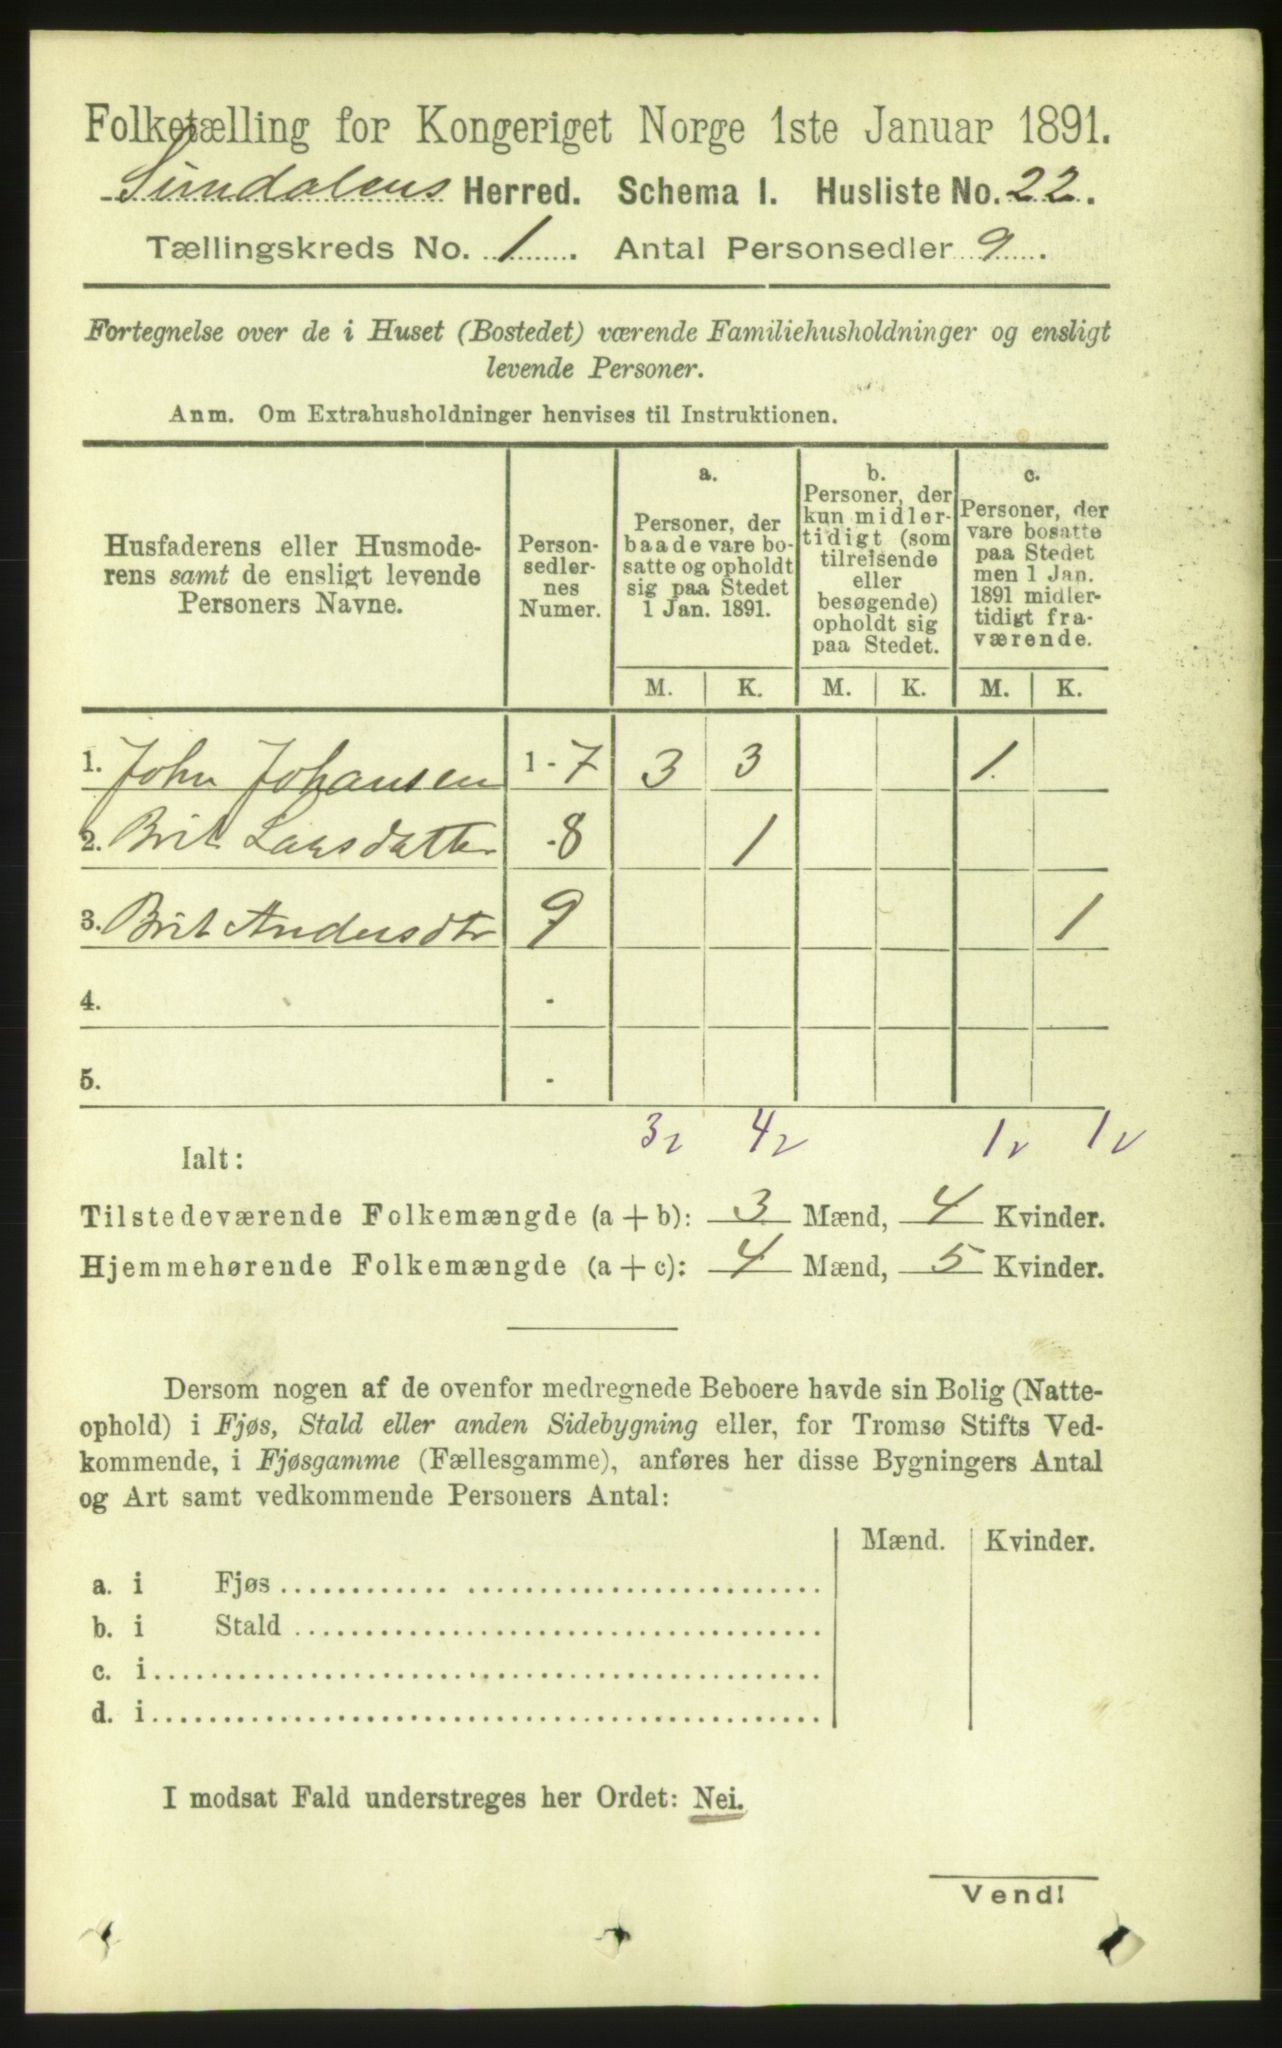 Folketælling for Kongeriget Norge 1ste Januar 1891.
Sundalens Herred. Schema I. Husliste No. 22.
Tællingskreds No. 1. Antal Personsedler 9.
Fortegnelse over de i Huset (Bostedet) værende Familiehusholdninger og ensligt
levende Personer.
Anm. Om Extrahusholdninger henvises til Instruktionen.
Husfaderens eller Husmode-
rens samt de ensligt levende
Personers Navne.
Person-
sedler-
nes
Numer.
a.
Personer, der
baade vare bo-
satte og opholdt
sig paa Stedet
1 Jan. 1891.
b.
Personer, der
kun midler-
tidigt (som
tilreisende
eller
besøgende)
opholdt sig
paa Stedet.
c.
Personer, der
vare bosatte
paa Stedet
men 1 Jan.
1891 midler-
tidigt fra-
værende.
M. K. M. K. M. K.
1. John Johansen 1 - 7 3 3 1.
2. Brit Larsdatter - 8 1
3. Brit Andersdtr 9 1
4. -
5. -
3 4 1 1
Ialt:
Tilstedeværende Folkemængde (a + b): 3 Mænd, 4 Kvinder.
Hjemmehørende Folkemængde (a + c): 4 Mænd, 5 Kvinder.
Dersom nogen af de ovenfor medregnede Beboere havde sin Bolig (Natte-
ophold) i Fjøs, Stald eller anden Sidebygning eller, for Tromsø Stifts Ved-
kommende, i Fjøsgamme (Fællesgamme), anføres her disse Bygningers Antal
og Art samt vedkommende Personers Antal:
Mænd. Kvinder.
a. i Fjøs
b. i Stald
c. i
d. i
I modsat Fald understreges her Ordet: Nei.
Vend!